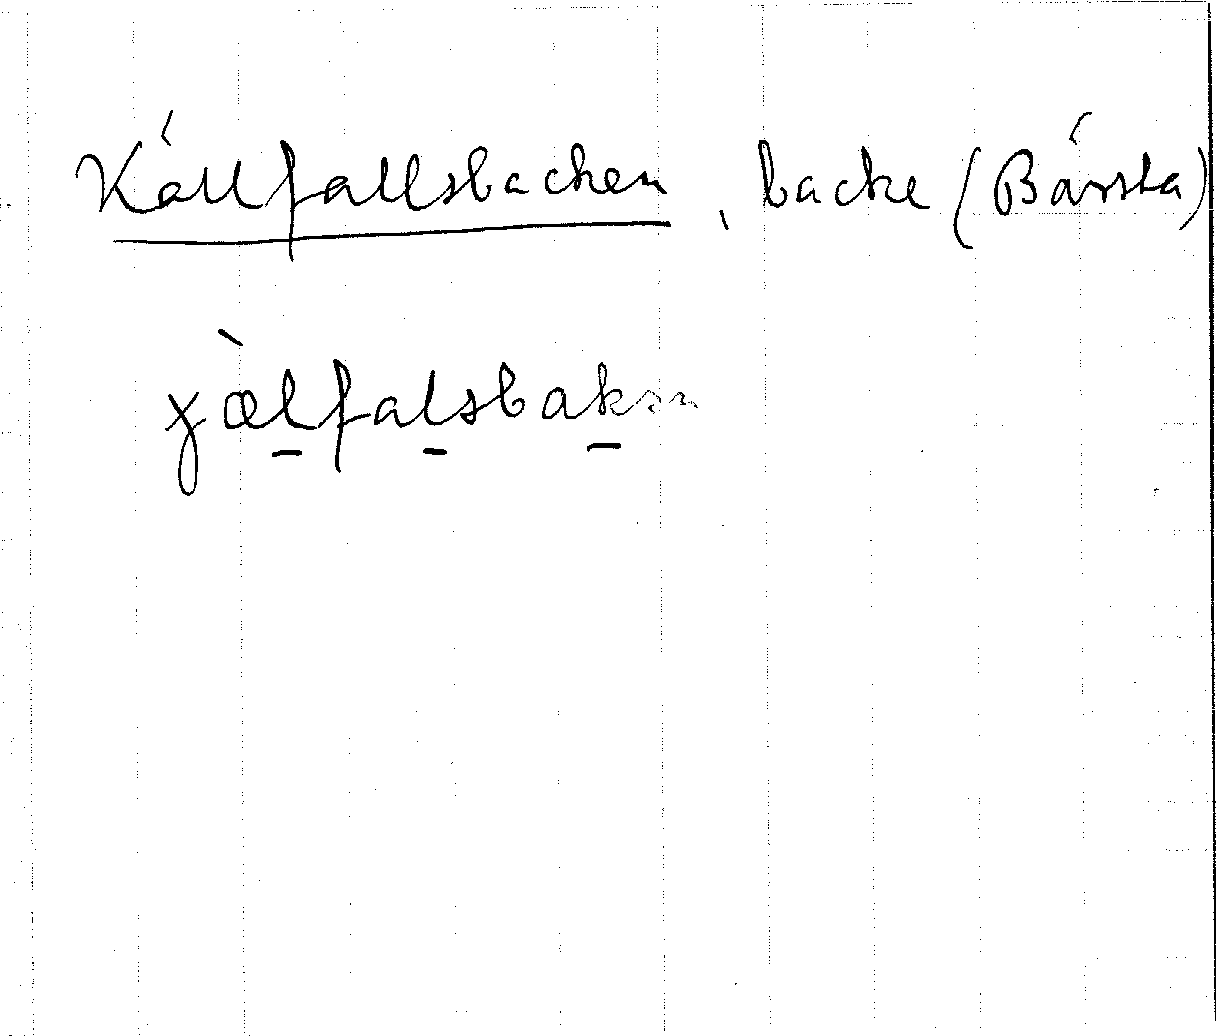 Källfallsbacken, backe (Bärsta)
χæ̀lfalsbakən